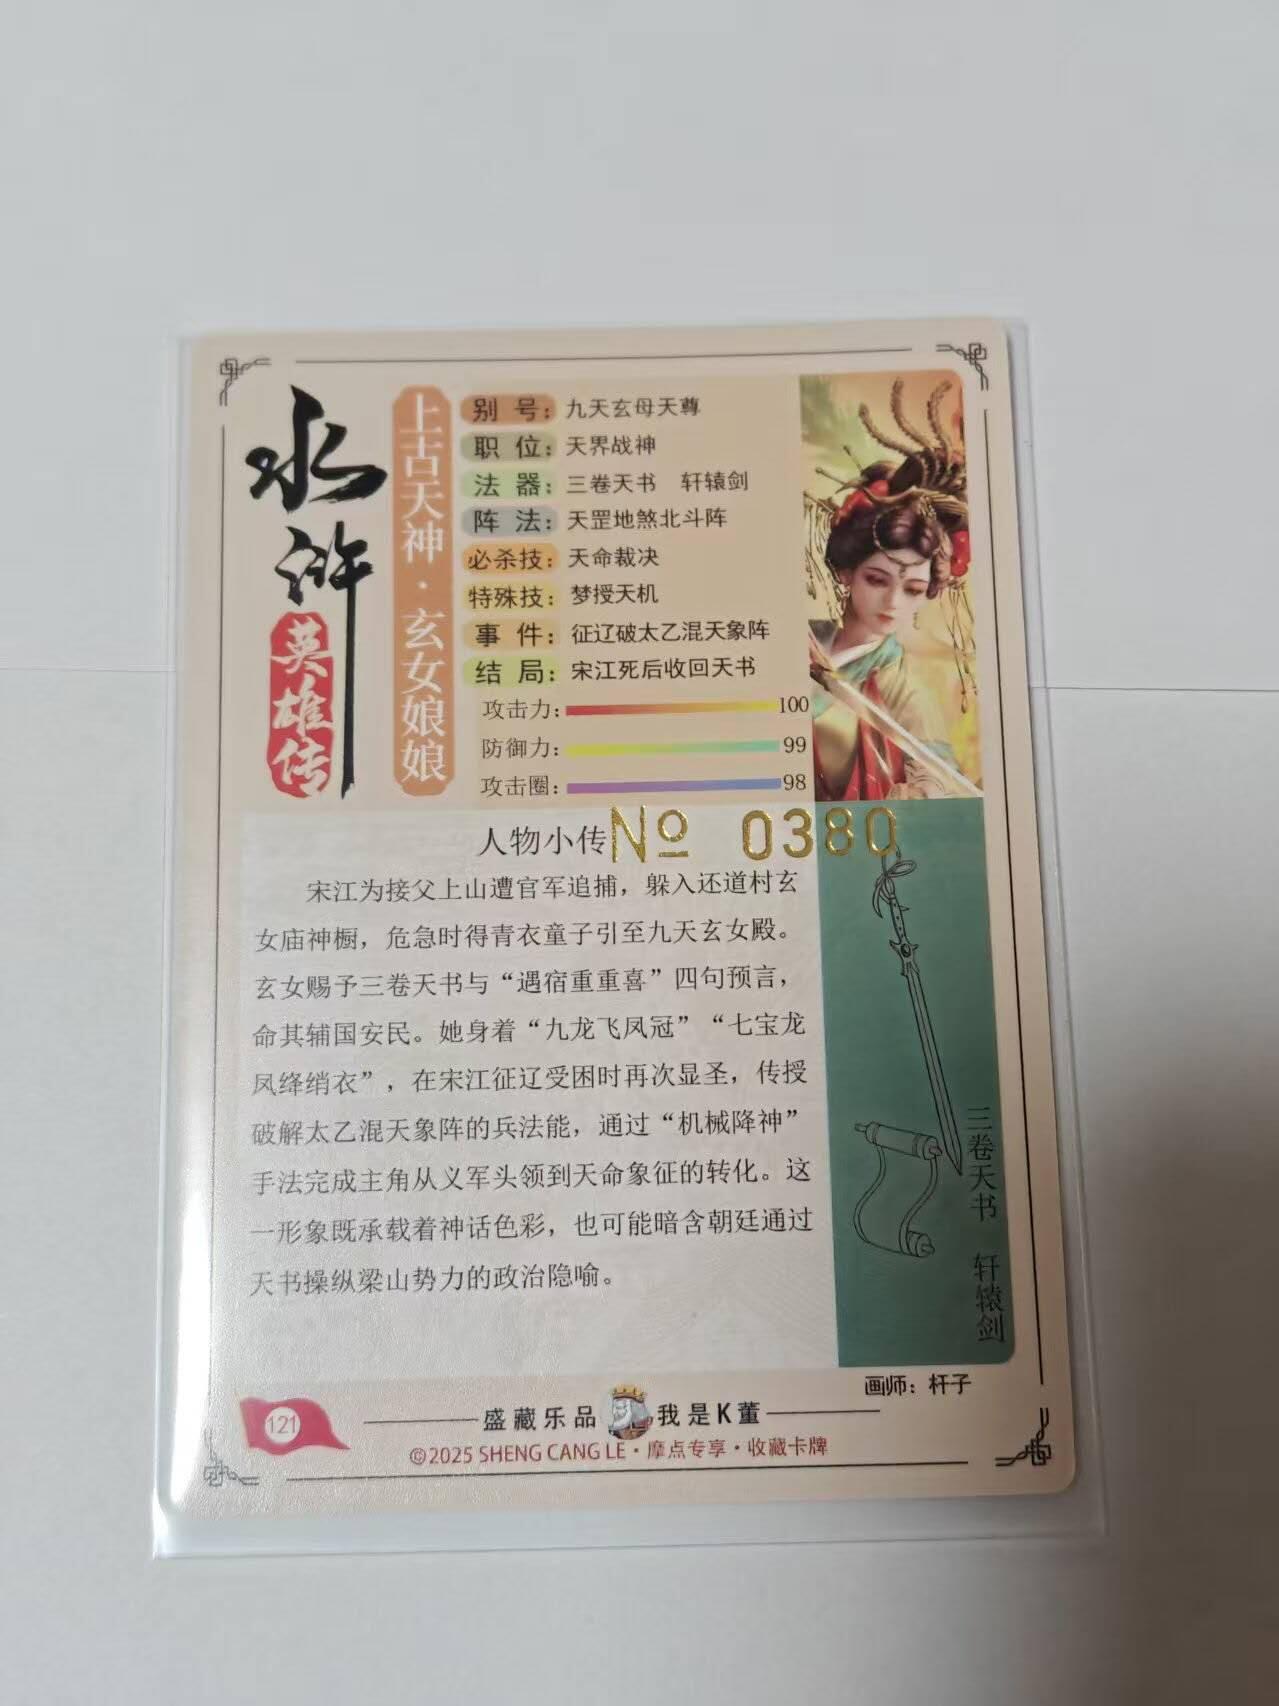 水浒
英雄传
上古天神·玄女娘娘
别号：九天玄母天尊
职位：天界战神
法器：三卷天书 轩辕剑
阵法：天罡地煞北斗阵
必杀技：天命裁决
特殊技：梦授天机
事件：征辽破太乙混天象阵
结局：宋江死后收回天书
攻击力：100
防御力：99
攻击圈：98
人物小传
№ 0380
宋江为接父上山遭官军追捕，躲入还道村玄
女庙神橱，危急时得青衣童子引至九天玄女殿。
玄女赐予三卷天书与“遇宿重重喜”四句预言，
命其辅国安民。她身着“九龙飞凤冠”“七宝龙
凤绛绡衣”，在宋江征辽受困时再次显圣，传授
破解太乙混天象阵的兵法能，通过“机械降神”
手法完成主角从义军头领到天命象征的转化。这
一形象既承载着神话色彩，也可能暗含朝廷通过
天书操纵梁山势力的政治隐喻。
三卷天书 轩辕剑
画师：杆子
121
盛藏乐品 我是K董
©2025 SHENG CANG LE·摩点专享·收藏卡牌